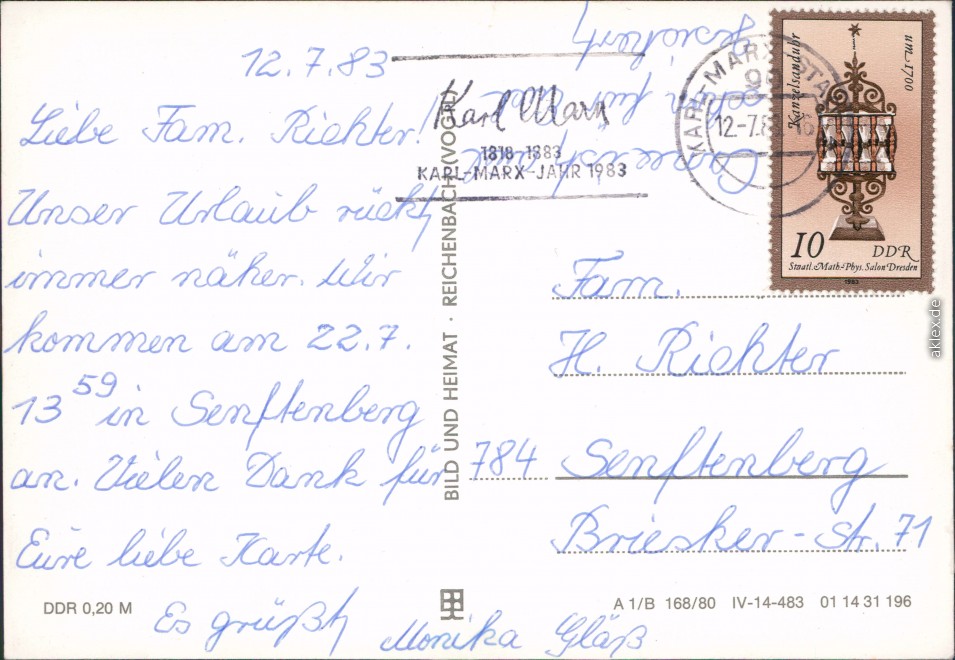 12.7.83
Liebe Fam. Richter!
Unser Urlaub rückt
immer näher. Wir
kommen am 22.7.
13 59 in Senftenberg
an. Vielen Dank für
Eure liebe Karte.
Es grüßt
Monika Gläß
Karl Marx
1818-1883
KARL-MARX-JAHR 1983
KARL-MARX-STADT
12.-7.83
Kanzelsanduhr
um 1700
10 DDR
Staatl. Math.-Phys. Salon Dresden
1983
BILD UND HEIMAT · REICHENBACH (VOGTL)
Fam.
H. Richter
784 Senftenberg
Briesker-Str. 71
DDR 0,20 M
A 1/B 168/80 IV-14-483 01 14 31 196
aklex.de